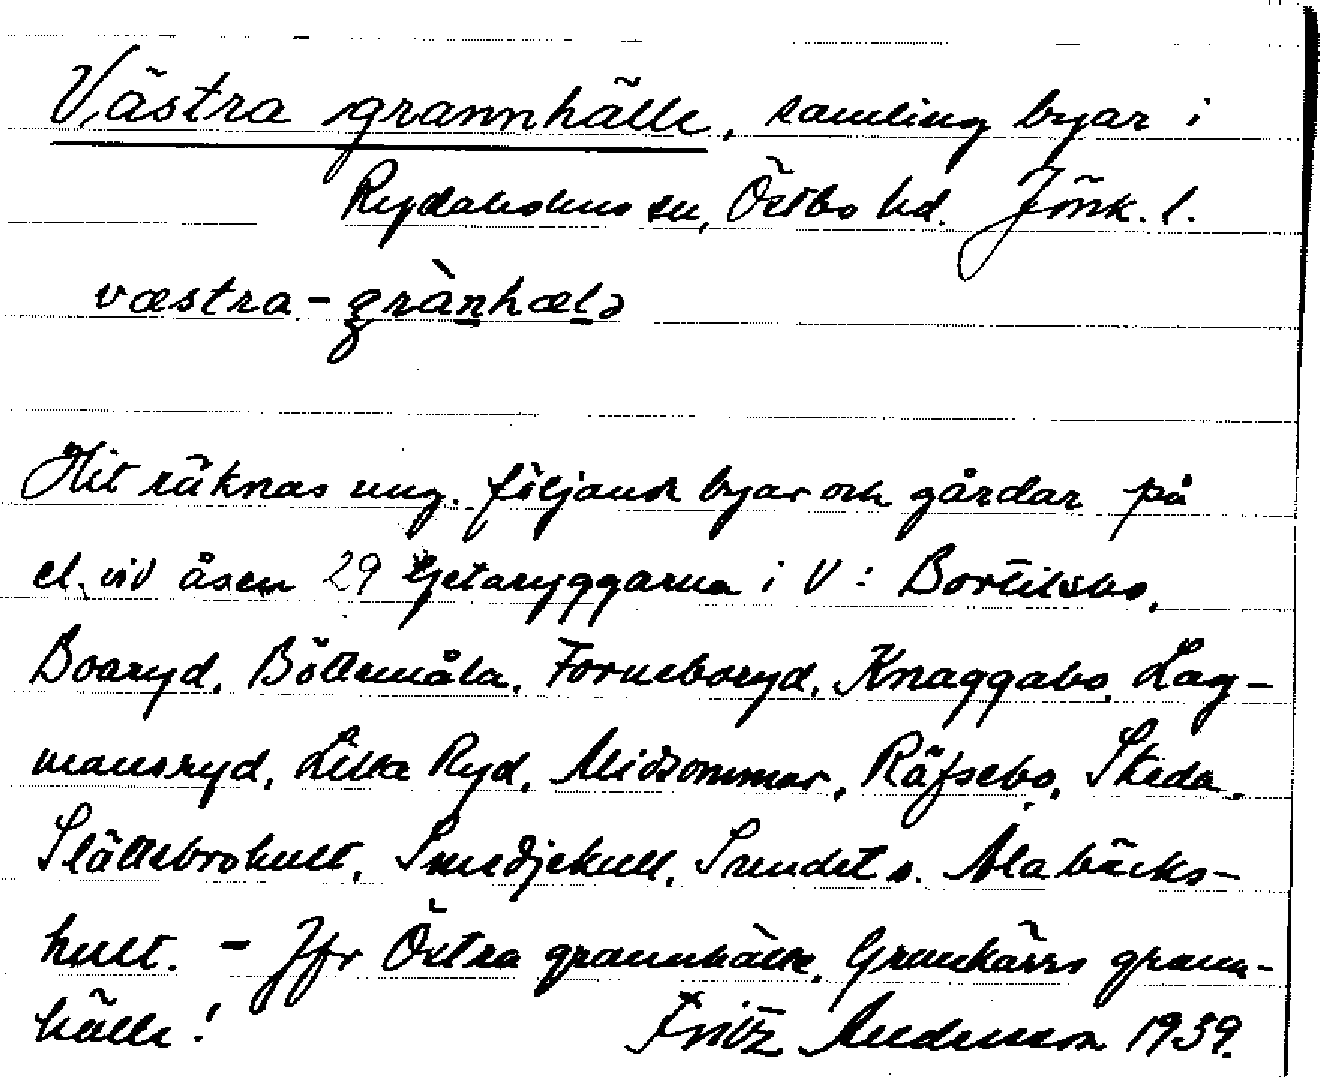 Västra grannhälle, samling byar i
Rydaholms sn, Östbo hd. Jönk. l.
væstra-grànhælə
Hit räknas ung. följande byar och gårdar på
el. vid åsen 29 Getaryggarna i V: Bortilsbo,
Boaryd, Böllemåla, Forneboryd, Knaggabo, Lag-
mansryd, Lilla Ryd, Midsommar, Räfsebo, Skeda,
Slättebrohult, Smedjekull, Sundet o. Ålabäcks-
hult. - Jfr Östra grannhälle, Grankärrs grann-
hälle!
Fritz Anderson 1939.